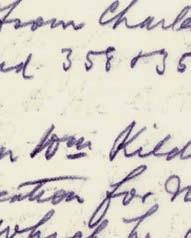 from Charle
nd 358 & 35
n Wm Kild
cation for
which h